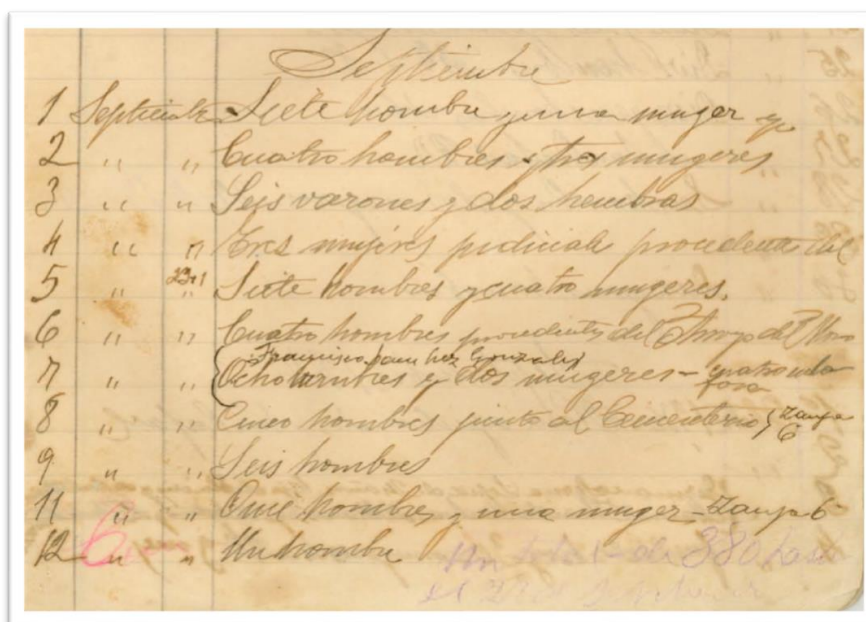 Septiembre
1 Septiembre Siete hombre y una muger y
2 " " Cuatro hombres y tres mugeres
3 " " Seis varones y dos hembras
4 " " Tres mujeres judiciale procedentes del
231
5 " " Siete hombres y cuatro mugeres.
6 " " Cuatro hombres procedentes del Arroyo del Moro
Francisco Sanchez Gonzalez
7 " " Ocho hombres y dos mugeres - cuatro en la fosa
8 " " Cinco hombres junto al Cementerio } Zanja 6
9 " " Seis hombres
11 " " Once hombres y una muger - Zanja 6
12 " " Un hombre
Un total de 380 hasta
el 21 de Septiembre